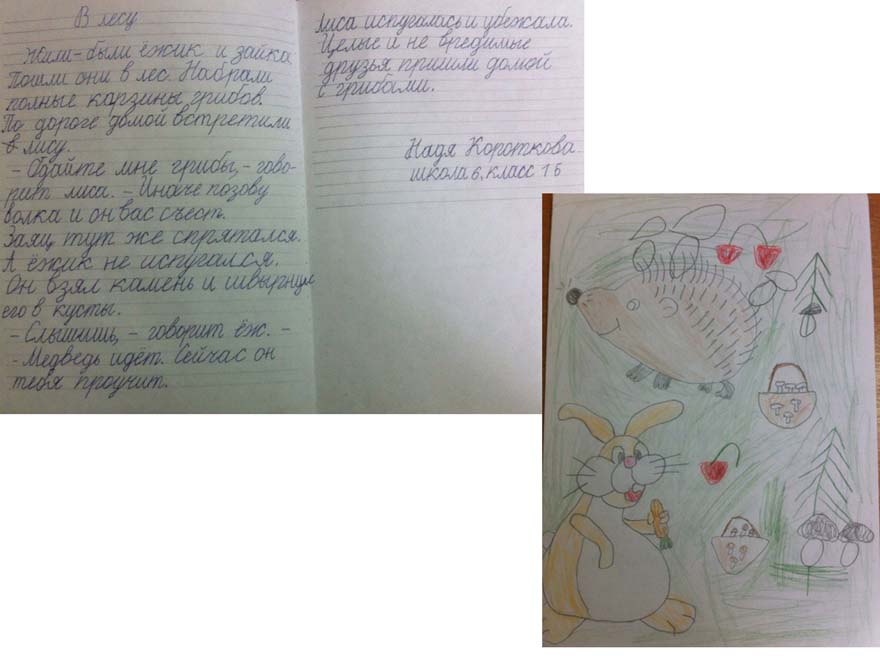 В лесу
Жили-были ёжик и зайка
Пошли они в лес. Набрали
полные карзины грибов.
По дороге домой встретили
в лису.
- Одайте мне грибы, - гово-
рит лиса. - Иначе позову
волка и он вас съест.
Заяц тут же спрятался.
А ёжик не испугался.
Он взял камень и швырнул
его в кусты.
- Слышишь, - говорит ёж. -
- Медведь идёт. Сейчас он
тебя проучит.
Лиса испугалась и убежала.
Целые и не вредимые
друзья пришли домой
с грибами.
Надя Короткова
школа 6, класс 1 Б